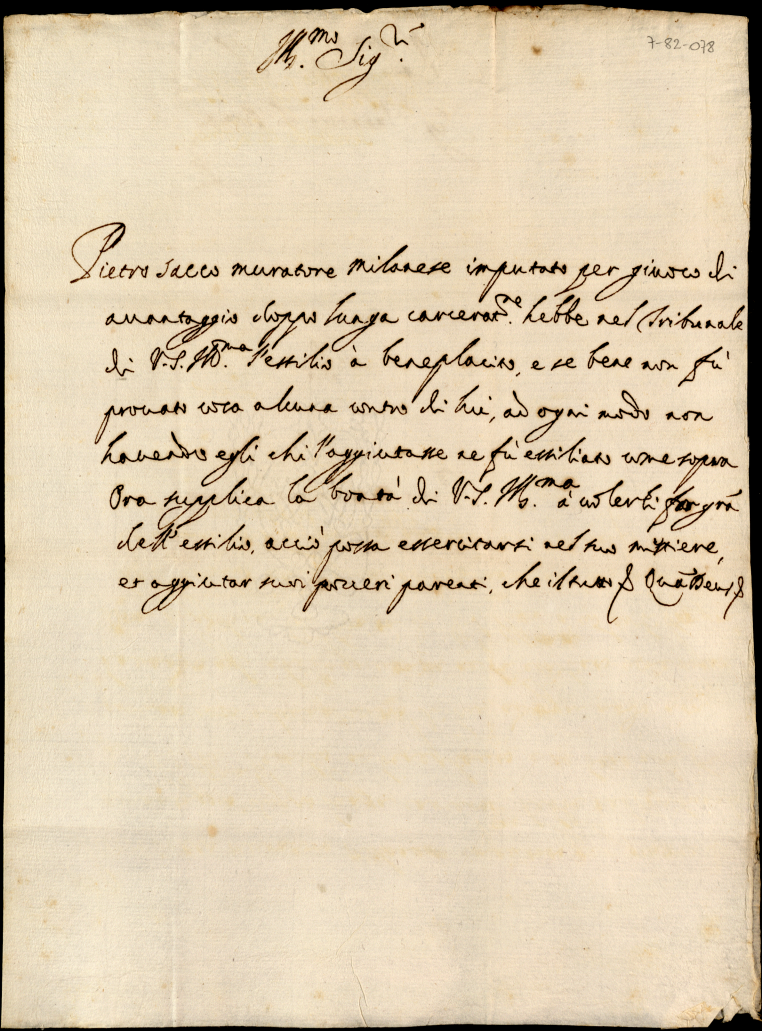 Ill.mo Sig.r
7-82-078
Pietro Sacco muratore milanese imputato per giuoco di
auantaggio doppo lunga carcerat.ne hebbe nel Tribunale
di V.S. Ill.ma l'essilio à beneplacito, e se bene non fù
prouato cosa alcuna contro di lui, ad ogni modo non
hauendo egli chi l'aggiutasse ne fù essiliato come sopra
Ora supplica la bontà di V.S. Ill.ma à uolerli far gra
dell'essilio, acciò possa essercitarsi nel suo mistiere,
et aggiutar suoi poueri parenti, che il tutto